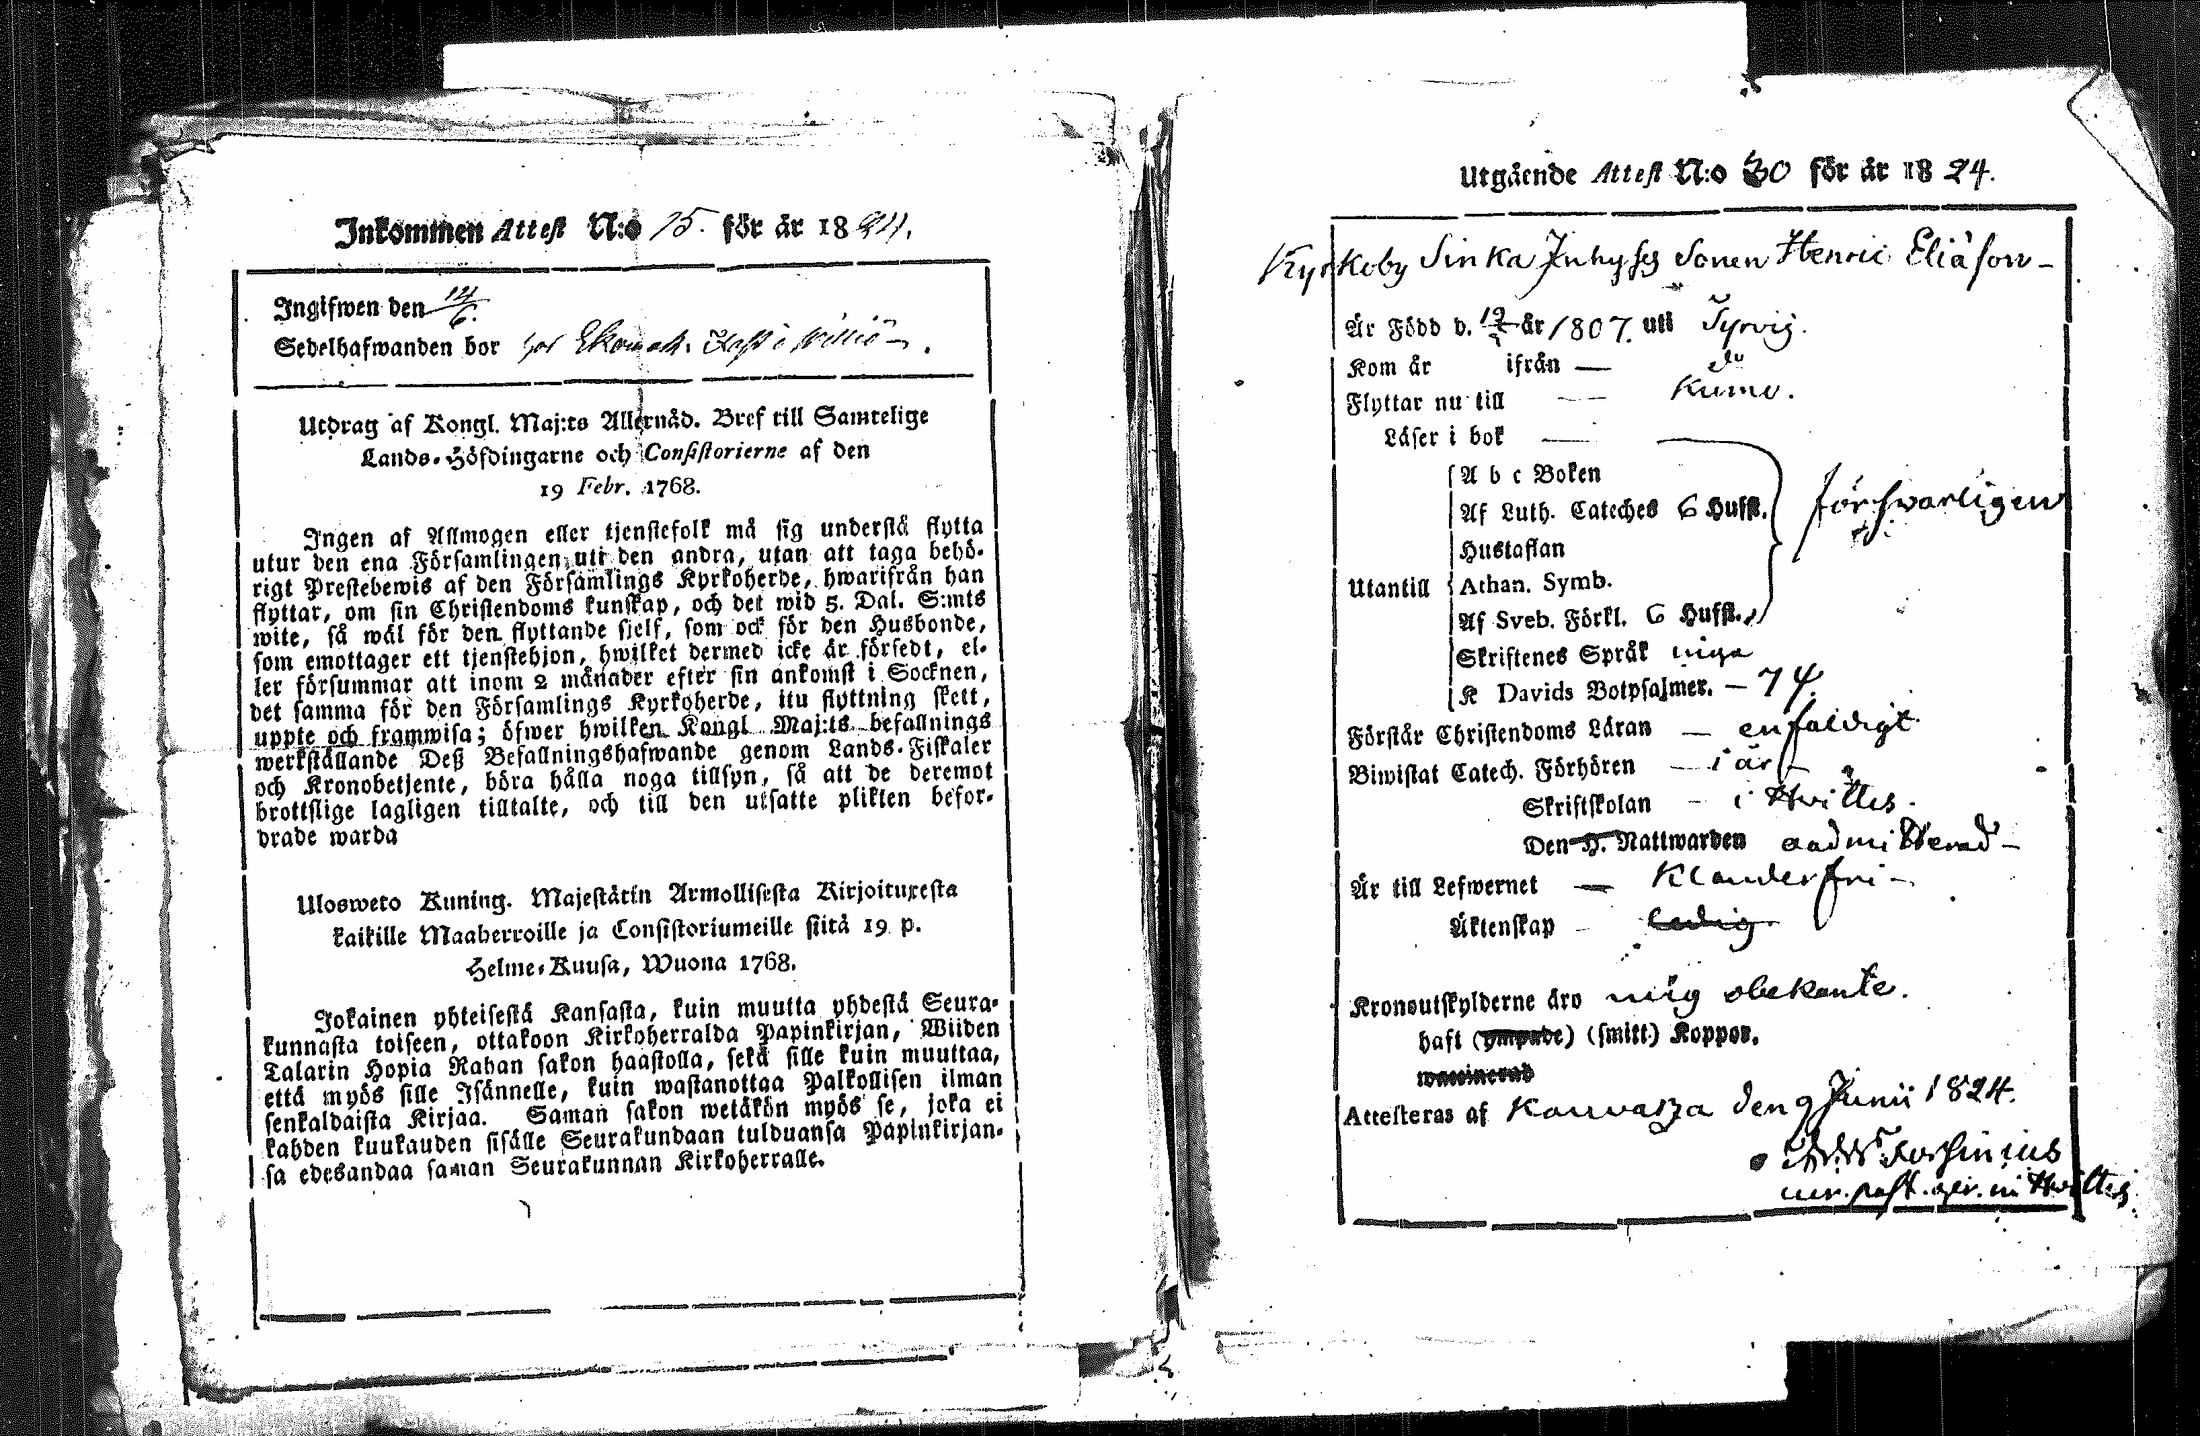 Inkommen Attest N:o 15. för år 1824.
Ingifwen den 14/6.
Sedelhafwanden bor hos
Utdrag af Kongl. Maj:ts Allernåd. Bref till Samtelige
Lands-Höfdingarne och Consistorierne af den
19 Febr. 1768.
Ingen af Allmogen eller tjenstefolk må sig understå flytta
utur den ena Församlingen uti den andra, utan att taga behö-
rigt Prestebewis af den Församlings Kyrkoherde, hwarifrån han
flyttar, om sin Christendoms kunskap, och det wid 5. Dal. S:mts
wite, så wäl för den flyttande sjelf, som ock för den Husbonde,
som emottager ett tjenstehjon, hwilket dermed icke är försedt, el-
ler försummar att inom 2 månader efter sin ankomst i Socknen,
det samma för den Församlings Kyrkoherde, itu flyttning skett,
uppte och framwisa; öfwer hwilken Kongl Maj:ts befallnings
werkställande Deß Befallningshafwande genom Lands-Fiskaler
och Kronobetjente, böra hålla noga tillsyn, så att de deremot
brottslige lagligen tilltalte, och till den utsatte plikten befor-
drade warda
Ulosweto Kuning. Majestätin Armollisesta Kirjoituxesta
kaikille Maaherroille ja Consistoriumeille siitä 19 p.
Helme-Kuusa, Wuona 1768.
Jokainen yhteisestä Kansasta, kuin muutta yhdestä Seura-
kunnasta toiseen, ottakoon Kirkoherralda Papinkirjan, Wiiden
Talarin Hopia Rahan sakon haastolla, sekä sille kuin muuttaa,
että myös sille Isännelle, kuin wastanottaa Palkollisen ilman
senkaldaista Kirjaa. Saman sakon wetäkön myös se, joka ei
kahden kuukauden sisälle Seurakundaan tulduansa Papinkirjan-
sa edesandaa saman Seurakunnan Kirkoherralle.
Utgående Attest N:o 30 för år 1824.
Kyrkoby Sinka Inhyses Sonen Henric Eliäson
Är Född d. år 1807. uti Tyrvis.
Kom år ifrån — du
Flyttar nu till — Kumo.
Läser i bok —
A b c Boken
Af Luth. Cateches 6 Hufst. försvarligen
Hustaflan
Utantill Athan. Symb.
Af Sveb. Förkl. 6 Hufst.
Skriftenes Språk niga
K Davids Botpsalmer. — 7 4.
Förstår Christendoms Läran — enfaldigt
Biwistat Catech. Förhören — i år —
Skriftskolan — i Hvittis.
Den H. Nattwarden admitterad —
Är till Lefwernet — Klanderfri —
Äktenskap — ledig
Kronoutskylderne äro mig obekante.
haft (ympade) (smitt.) Koppor.
waccinerad
Attesteras af Kauvatza den 9 Junii 1824.
Forsinius
i Hvittis